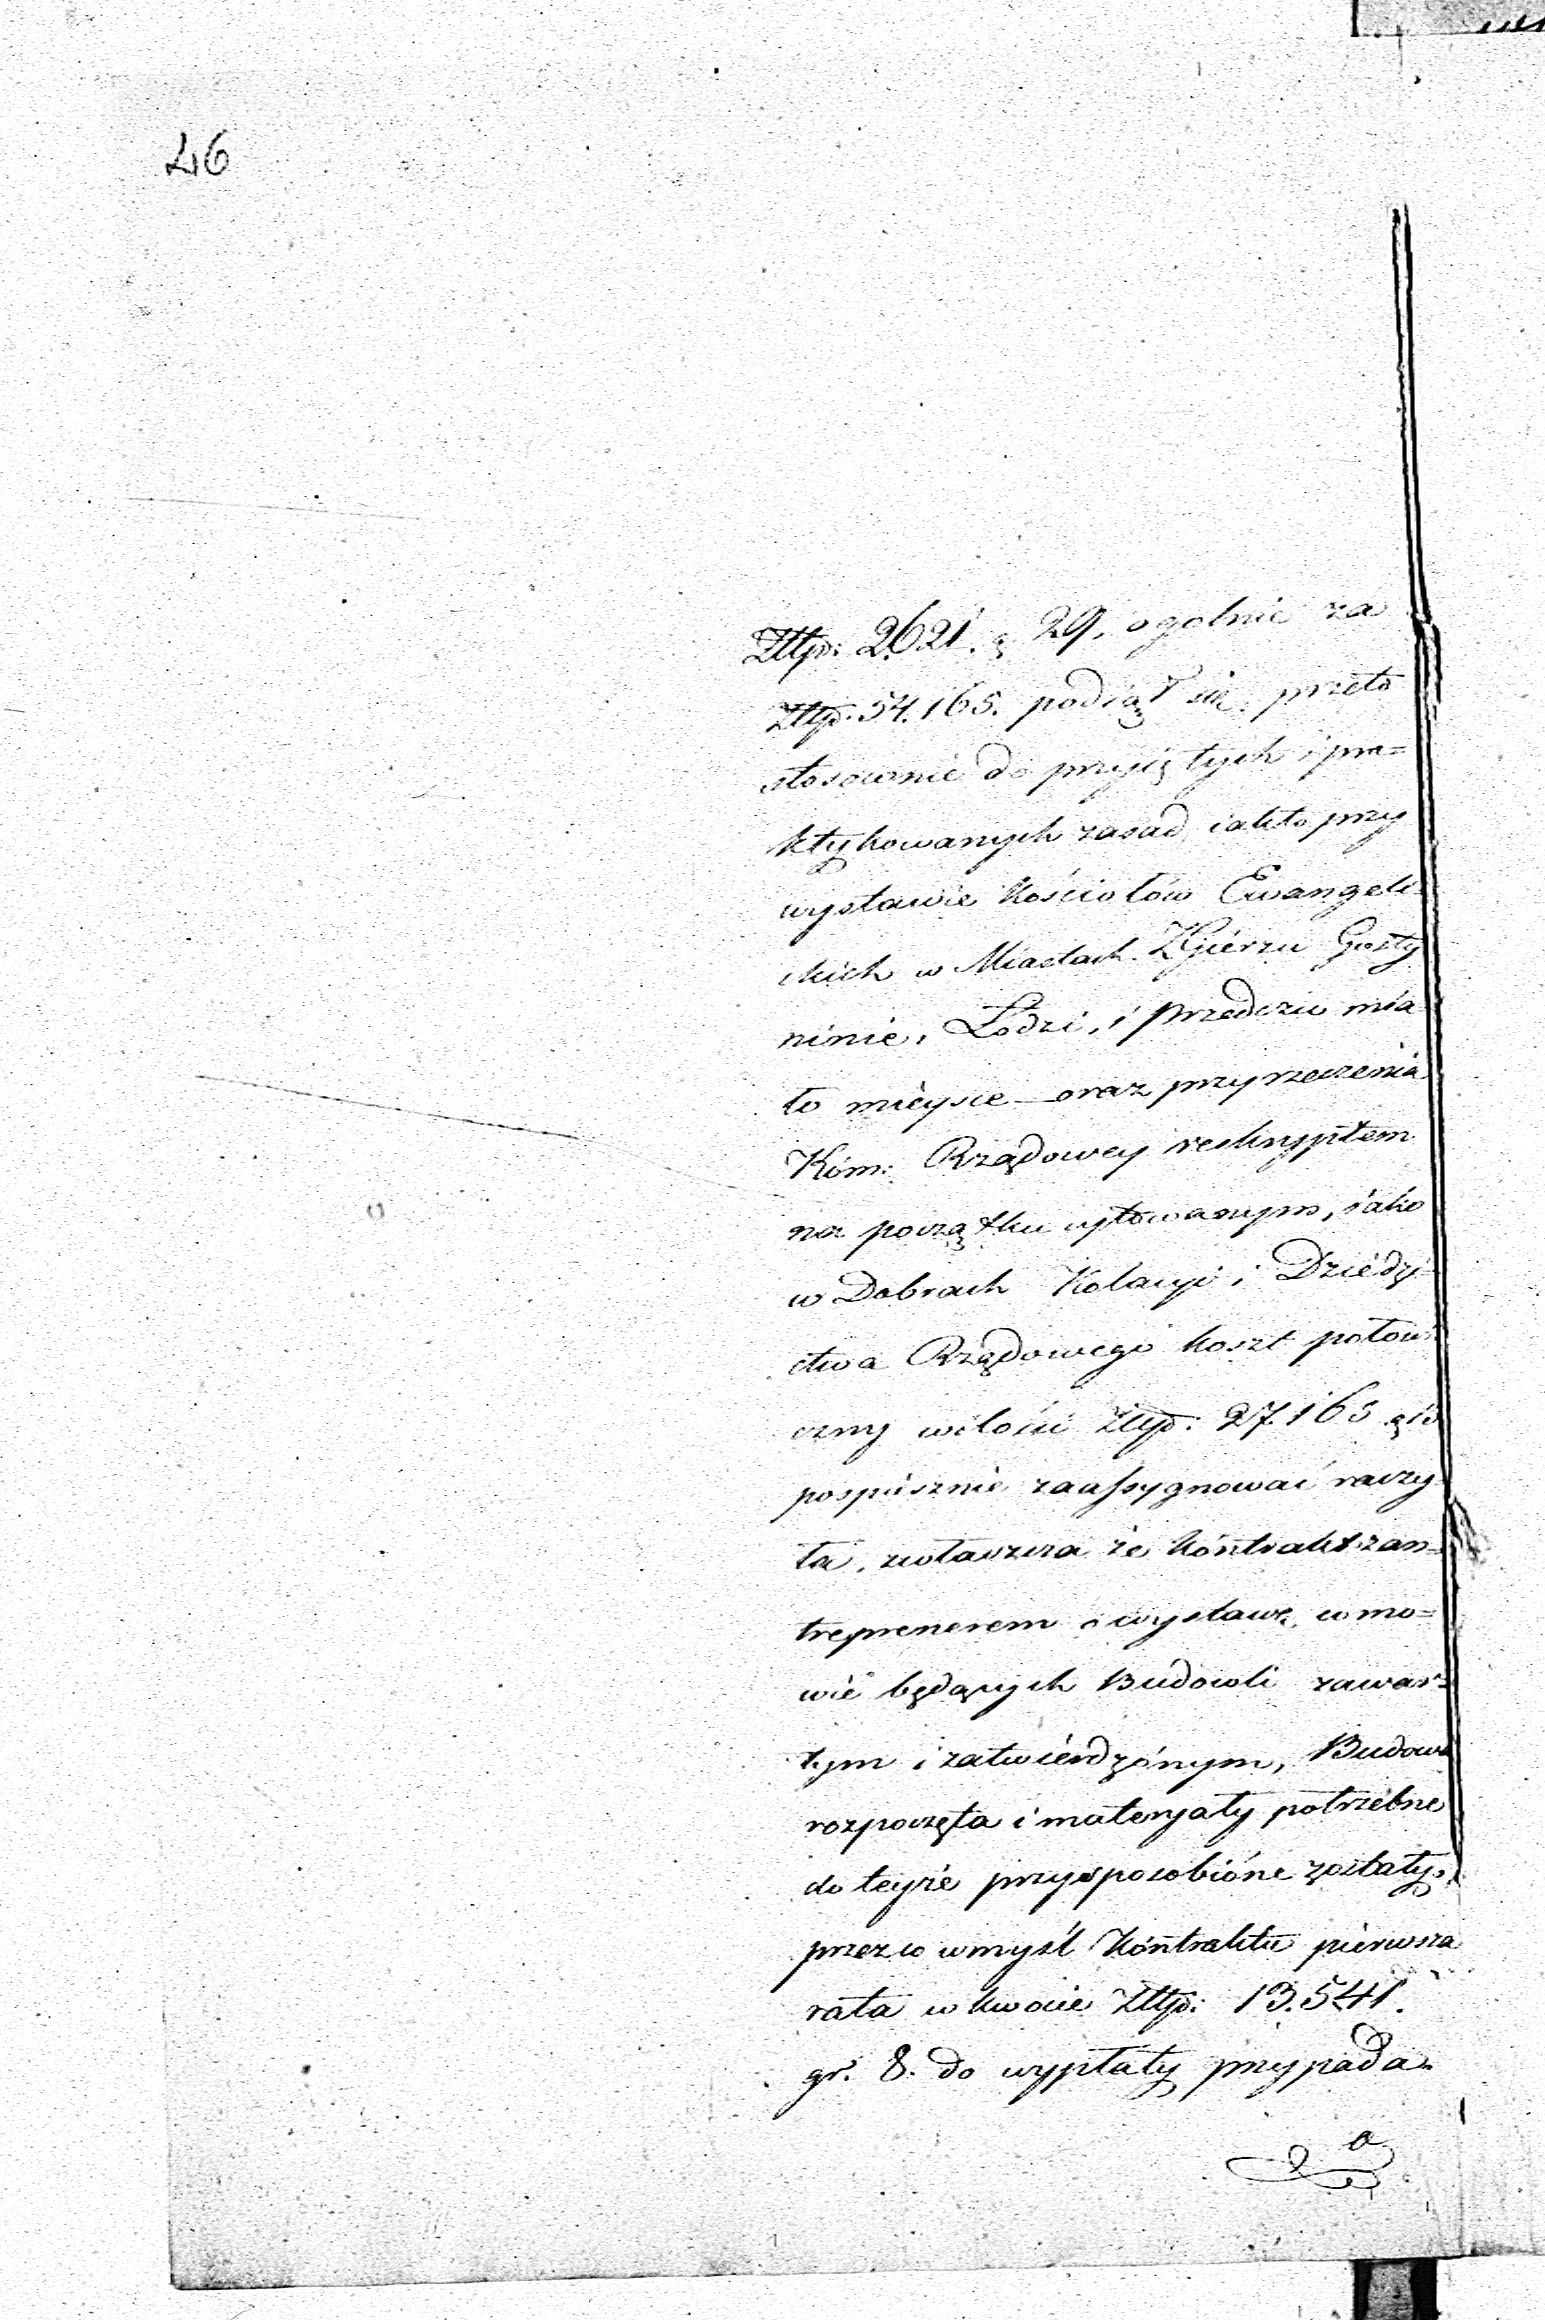 46
Złtp: 2621. g 29, ogolnie za
Złtp. 54.165. podiął się. przeto
stosownie do przyiętych i pra=
ktykowanych zasad iakto przy
wystawie Kościołów Ewangeli
ckich w Miastach Zgierzu Gosty
ninie, Łodzi, i Przedczu mia
ło mieysce oraz przyrzeczenia
Kom: Rządowey reskryptem
na początku cytowanym, iako
w Dobrach Kolacyi i Dziedzi=
ctwa Rządowego koszt połow
czny wilości Złtp: 27.163 g
pospiesznie zaassygnować raczy
ła, zwłaszcza że Kontrakt zan=
treprenerem o wystawę w mo=
wie będących Budowli zawar=
tym i zatwierdzonym, Budowa
rozpoczęta i materyały potrzebne
do teyże przysposobione zostały,
przez co wmyśl Kontraktu pierwsza
rata w kwocie Złtp: 13.541.
gr. 8. do wypłaty przypada.
a